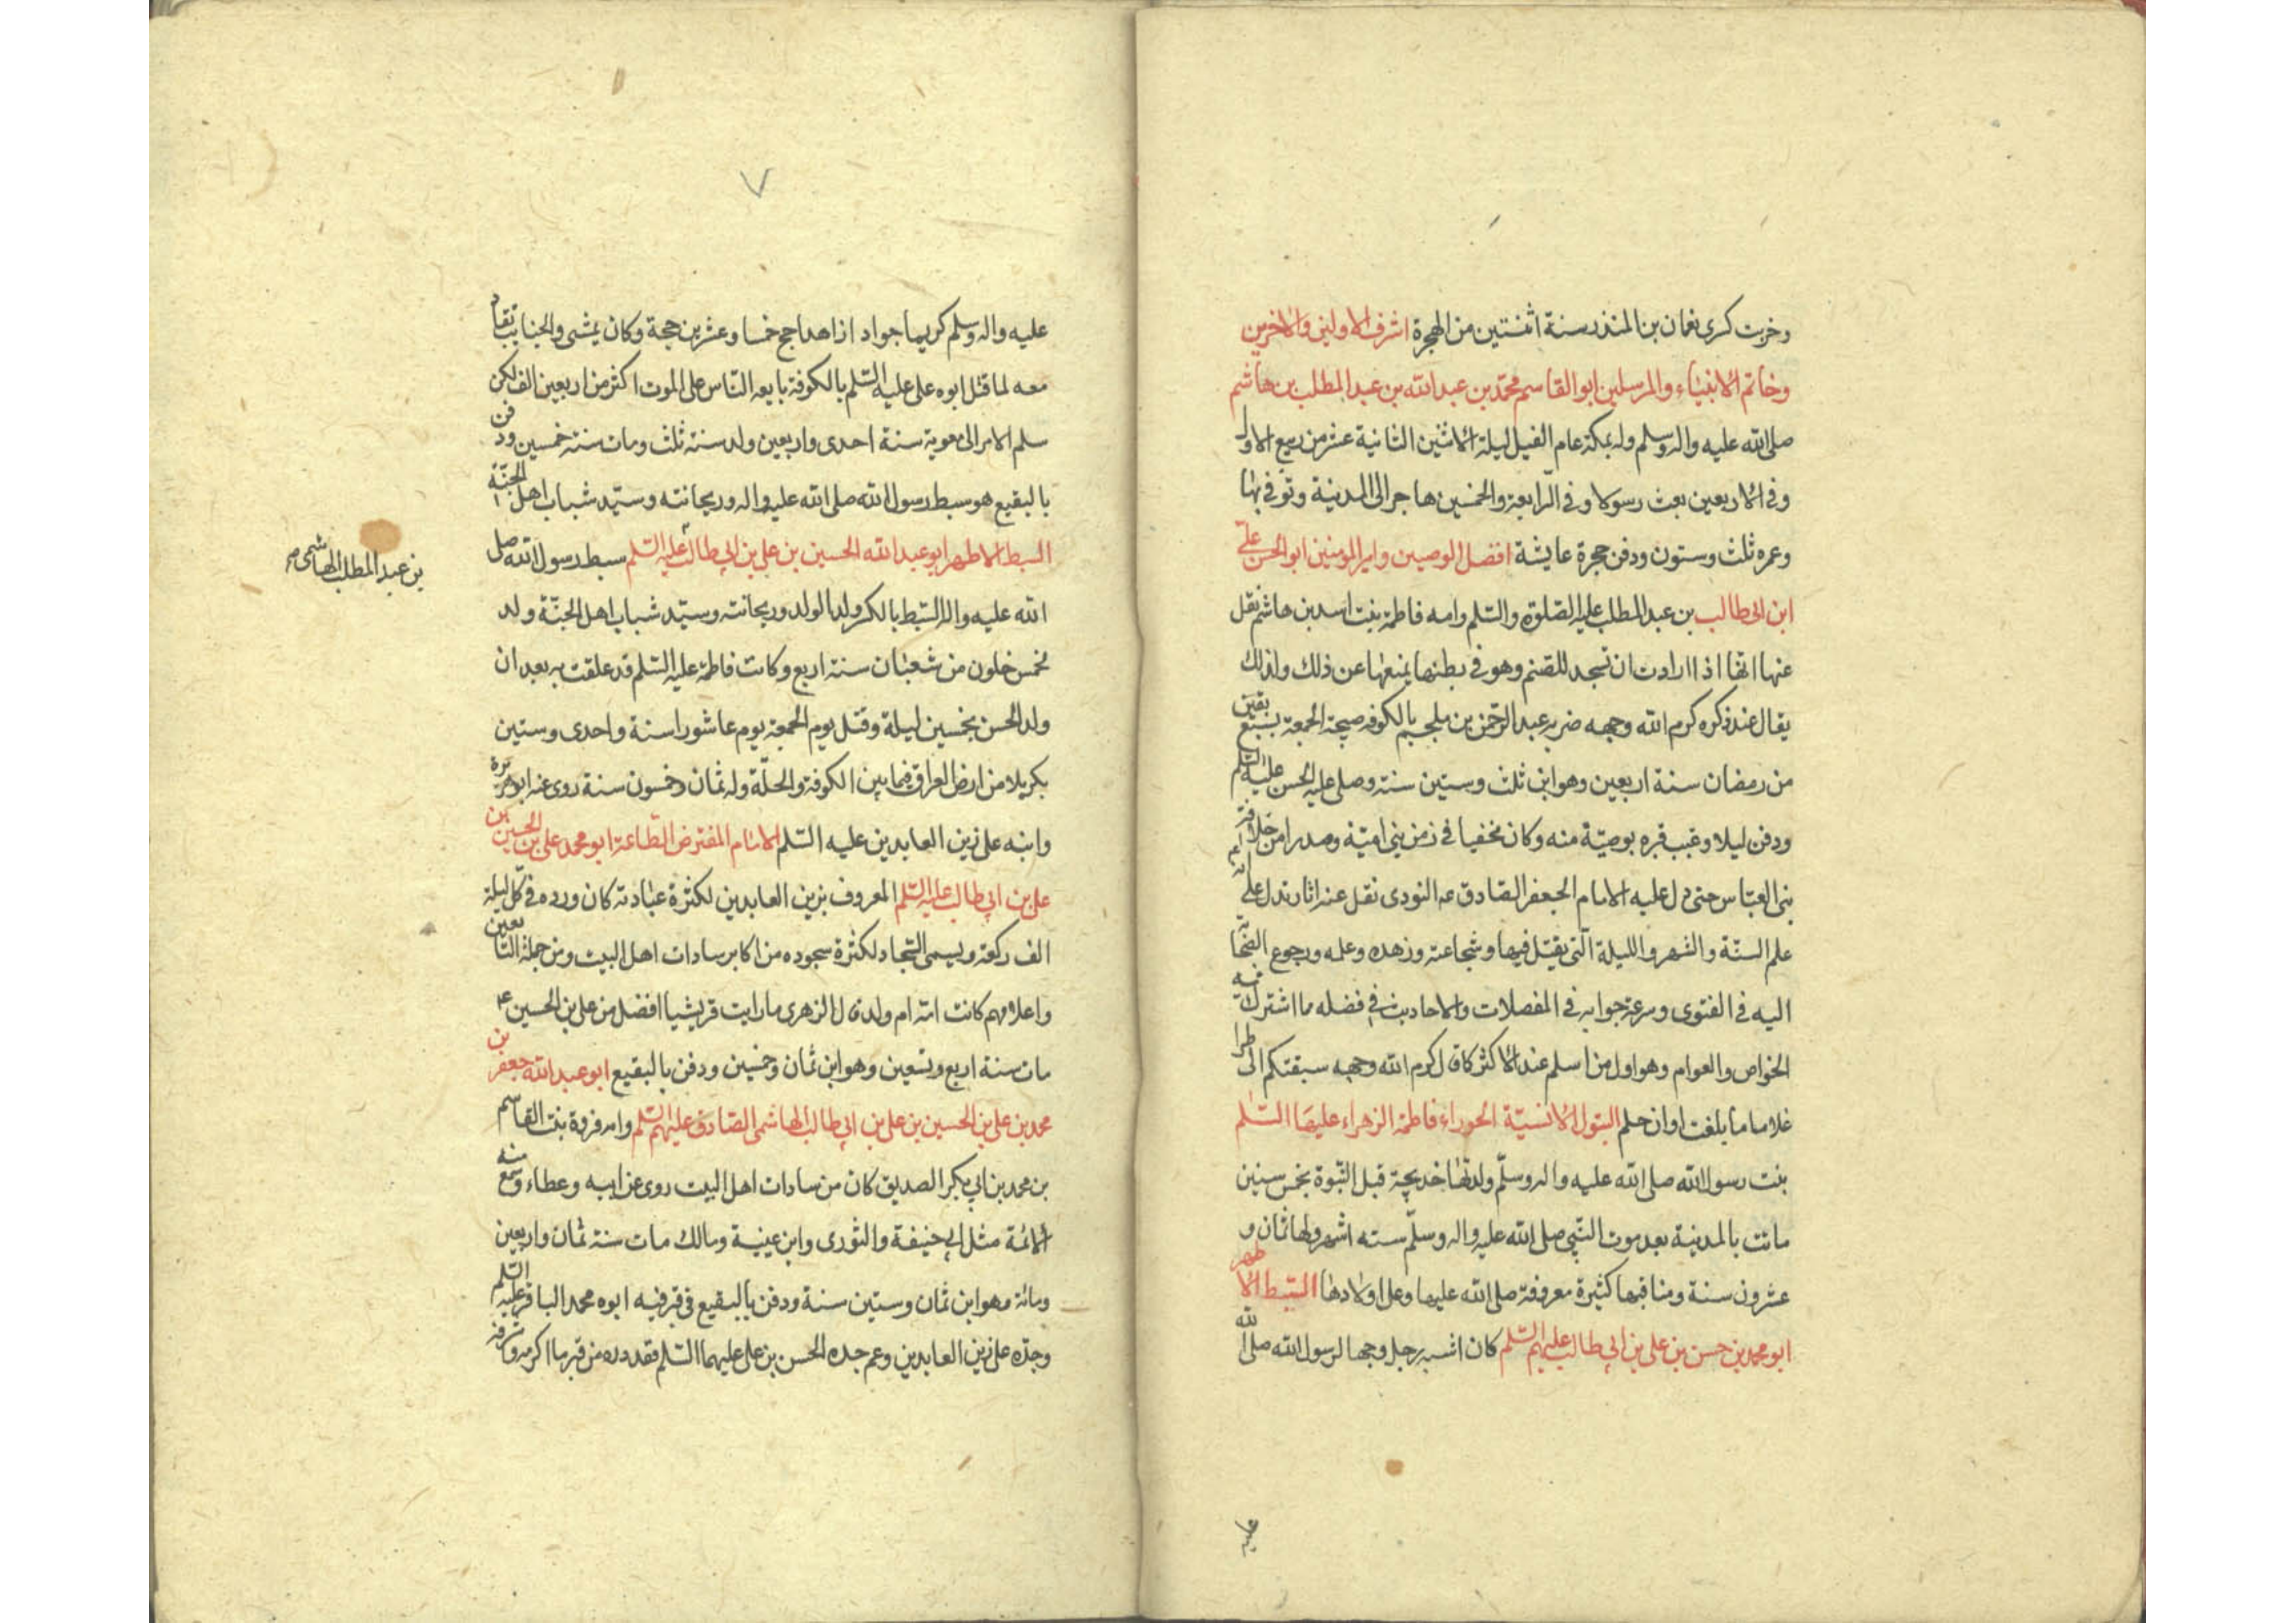 وخربت كسرى نعمان بن المنذر سنة اثنتين من الهجرة اشرف الاولين والاخرين
وخاتم الانبياء والمرسلين ابو القاسم محمد بن عبد الله بن عبد المطلب بن هاشم
صلى الله عليه واله وسلم ولد بمكة عام الفيل ليلة الاثنين الثانية عشر من ربيع الاول
وفى الاربعين بعث رسولا وفى الرابعة والخمسين هاجر الى المدينة وتوفى بها
وعمره ثلث وستون ودفن حجرة عايشة افضل الوصيين وامير المومنين ابو الحسن على
ابن ابى طالب بن عبد المطلب عليه الصلوة والسلم وامه فاطمة بنت اسد بن هاشم نقل
عنها انها اذا ارادت ان تسجد للصنم وهو فى بطنها يمنعها عن ذلك ولذلك
يقال عند ذكره كرم الله وجهه ضربه عبد الرحمن بن ملجم بالكوفه صبيحة الجمعة لسبع بقين
من رمضان سنة اربعين وهو ابن ثلث وستين سنة وصلى عليه الحسن عليه السلم
ودفن ليلا وغيب قبره بوصية منه وكان مخفيا فى زمن بنى امية وصدرا من خلافة
بنى العباس حتى دل عليه الامام الجعفر الصادق عه النودى نقل عنه اثار تدل على انه
علم السنة والشهر والليلة التى يقتل فيها وشجاعته وزهده وعلمه ورجوع الصحابة
اليه فى الفتوى وسرعة جوابه فى المفصلات والاحاديث فى فضله مما اشترك فيه
الخواص والعوام وهو اول من اسلم عند الاكثر كما قال كرم الله وجهه سبقتكم الى طرا
غلاما ما بلغت اوان حلم البتول الانسية الحوراء فاطمة الزهراء عليها السلم
بنت رسول الله صلى الله عليه واله وسلم ولدتها خديجة قبل النبوة بخمس سنين
ماتت بالمدينة بعد موت النبى صلى الله عليه واله وسلم سته اشهر ولها ثمان و
عشرون سنة ومناقبها كثيرة معروفة صلى الله عليها وعلى اولادها السبط الاطهر
ابو محمد بن حسن بن على بن ابى طالب عليهم السلم كان اشبه رجل وجها لرسول الله صلى الله
عليه
٧
عليه واله وسلم كريما جوادا زاهدا حج خمسا وعشرين حجة وكان يمشى والجنايب تقاد
معه لما قتل ابوه على عليه السلم بالكوفة بايعه الناس على الموت اكثر من اربعين الف لكن
سلم الامر الى معوية سنة احدى واربعين ولد سنة ثلث ومات سنة خمسين ودفن
بالبقيع هو سبط رسول الله صلى الله عليه واله وريحانته وسيد شباب اهل الجنة
السبط الاطهر ابو عبد الله الحسين بن على بن ابى طالب عليه السلم سبط رسول الله صلى
بن عبد المطلب الهاشمى
الله عليه واله السبط بالكسر ولد الولد وريحانته وسيد شباب اهل الجنة ولد
لخمس خلون من شعبان سنة اربع وكانت فاطمة عليه السلم قد علقت به بعد ان
ولد الحسن بخمسين ليلة وقتل يوم الجمعة يوم عاشورا سنة واحدى وستين
بكربلا من ارض العراق فيما بين الكوفة والحلة وله ثمان وخمسون سنة روى عنه ابو هريرة
وابنه على زين العابدين عليه السلم الامام المفترض الطاعة ابو محمد على بن الحسين بن
على بن ابى طالب عليه السلم المعروف بزين العابدين لكثرة عبادته كان ورده فى كل ليلة
الف ركعة ويسمى السجاد لكثرة سجوده من اكابر سادات اهل البيت ومن جملة التابعين
واعلامهم كانت امه ام ولد قال الزهرى ما رايت قريشيا افضل من على بن الحسين ع
مات سنة اربع وتسعين وهو ابن ثمان وخمسين ودفن بالبقيع ابو عبد الله جعفر بن
محمد بن على بن الحسين بن على بن ابى طالب الهاشمى الصادق عليهم السلم وامه فروة بنت القاسم
بن محمد بن ابى بكر الصديق كان من سادات اهل البيت روى عن ابيه وعطاء وسمع منه
الائمة مثل ابى حنيفة والثورى وابن عينية ومالك مات سنة ثمان واربعين
ومائة وهو ابن ثمان وستين سنة ودفن بالبقيع فى قبر فيه ابوه محمد الباقر عليه السلم
وجده على زين العابدين وعم جده الحسن بن على عليهما السلم فقد دره من قبر ما اكرمه